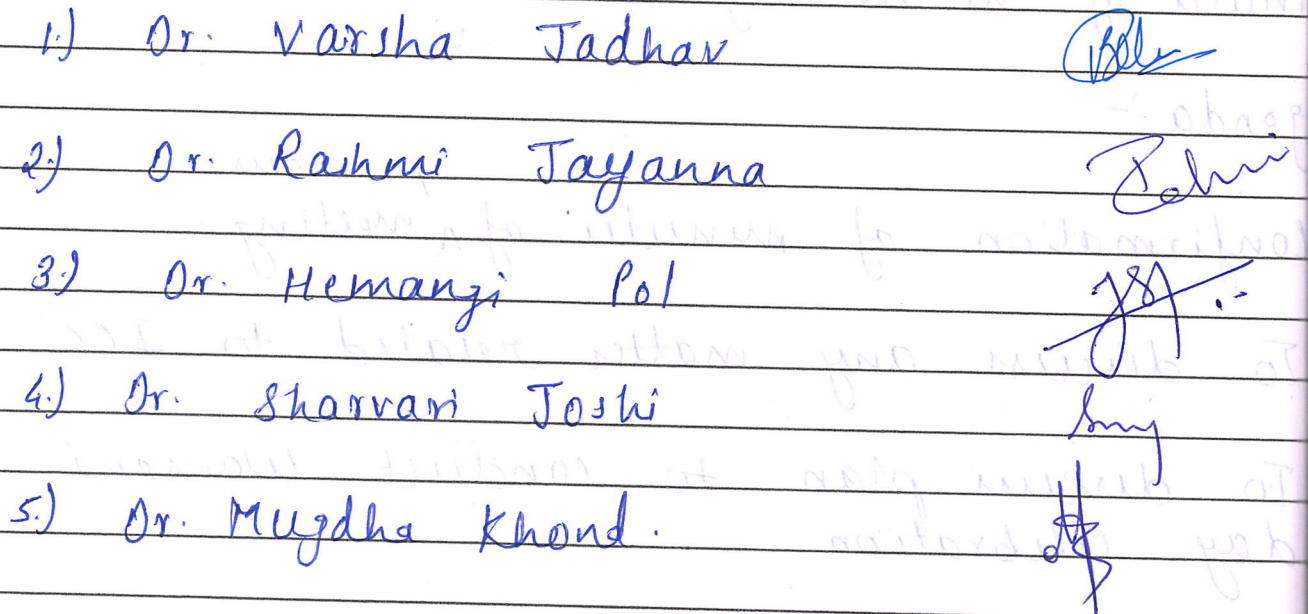 1.) Dr. Varsha Jadhav
2.) Dr. Rashmi Jayanna
3.) Dr. Hemangi Pol
4.) Dr. Sharvari Joshi
5.) Dr. Mugdha Khond.